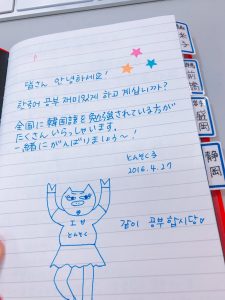 여러분 안녕하세요!
한국어 공부 재미있게 하고 계십니까?
全国に韓国語を勉強されている方が
たくさんいらっしゃいます。
一緒にがんばりましょう〜!
とんそくる
2016.4.27
I ♡
とんそく
같이 공부합시당♡
盛岡
静岡